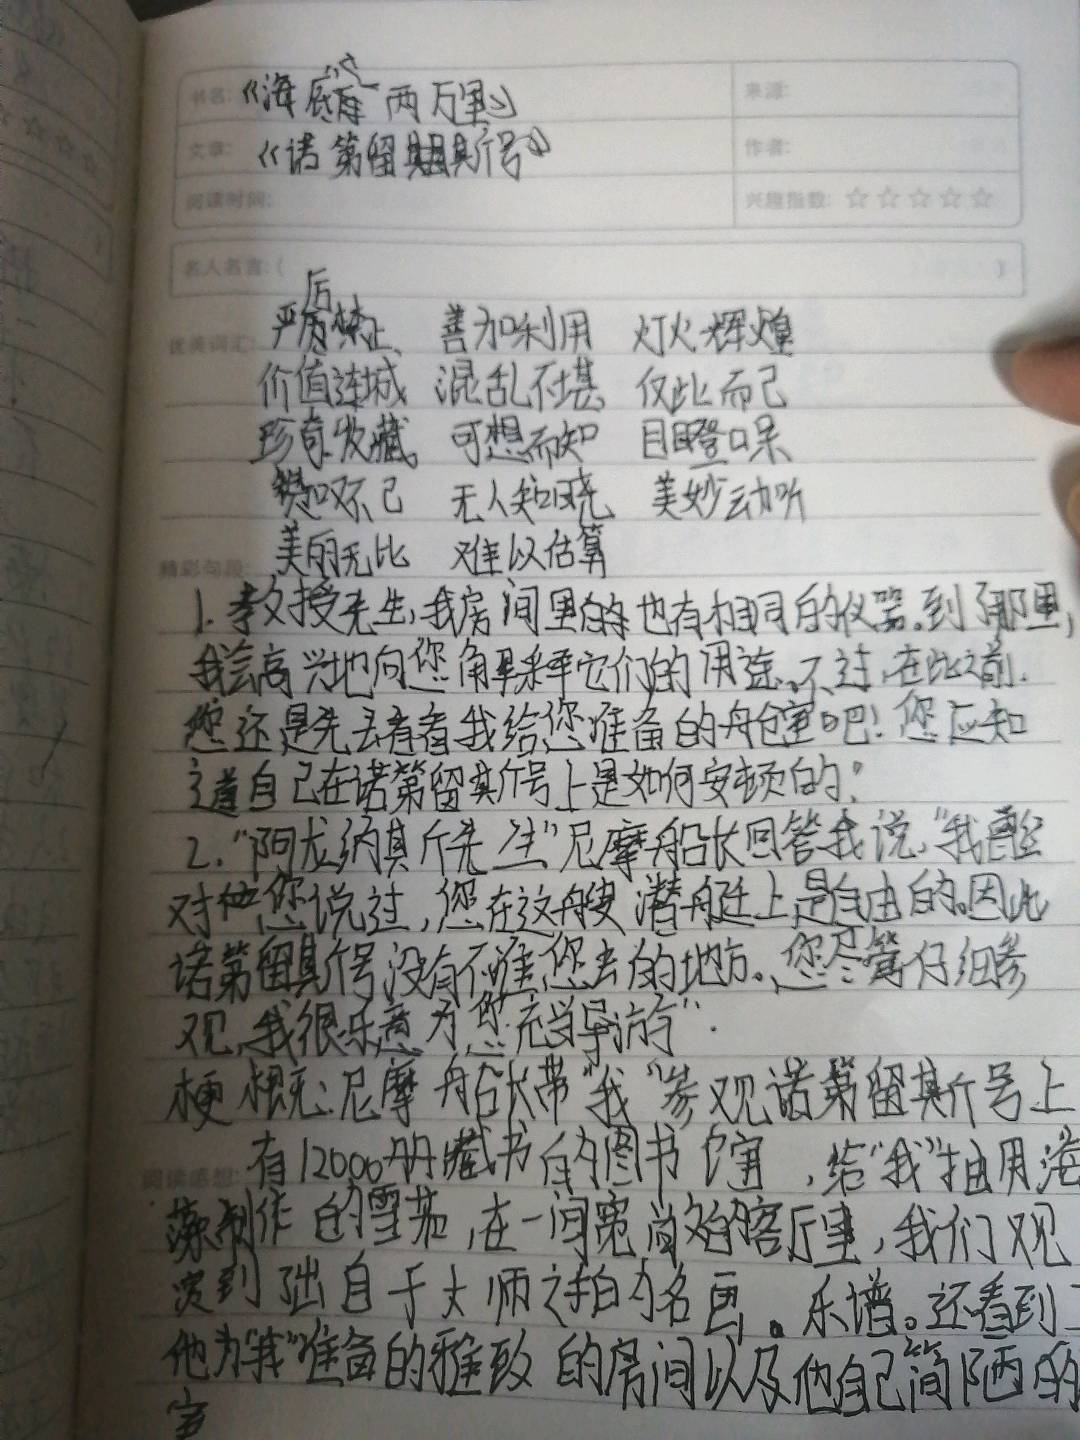 书名:《海底两万里》 来源:
文章:《诺第留斯号》 作者:
阅读时间: 兴趣指数: ☆☆☆☆☆
名人名言:( )
厉
优美词汇: 严厉禁止 善加利用 灯火辉煌
价值连城 混乱不堪 仅此而已
珍奇收藏 可想而知 目瞪口呆
赞叹不已 无人知晓 美妙动听
精彩句段: 美丽无比 难以估算
1.教授先生,我房间里的也有相同的仪器。到了那里,
我会高兴地向您解释它们的用途。不过,在此之前.
您还是先去看看我给您准备的舱室吧!您应知
道自己在诺第留斯号上是如何安顿的?
2.“阿龙纳其斤先生”尼摩船长回答我说,“我曾经
对您说过,您在这艘潜艇上是自由的。因此
诺第留斯号没有不准您去的地方。您尽管仔细参
观,我很乐意为您充当导游”.
梗概:尼摩船长带“我”参观诺第留斯号上
阅读感想: 有12000册藏书的图书室,给“我”抽用海
藻制作的雪茄,在一间宽敞的客厅里,我们观
赏到出自于大师之手的名画。乐谱。还看到了
他为“我”准备的雅致的房间以及他自己简陋的
室